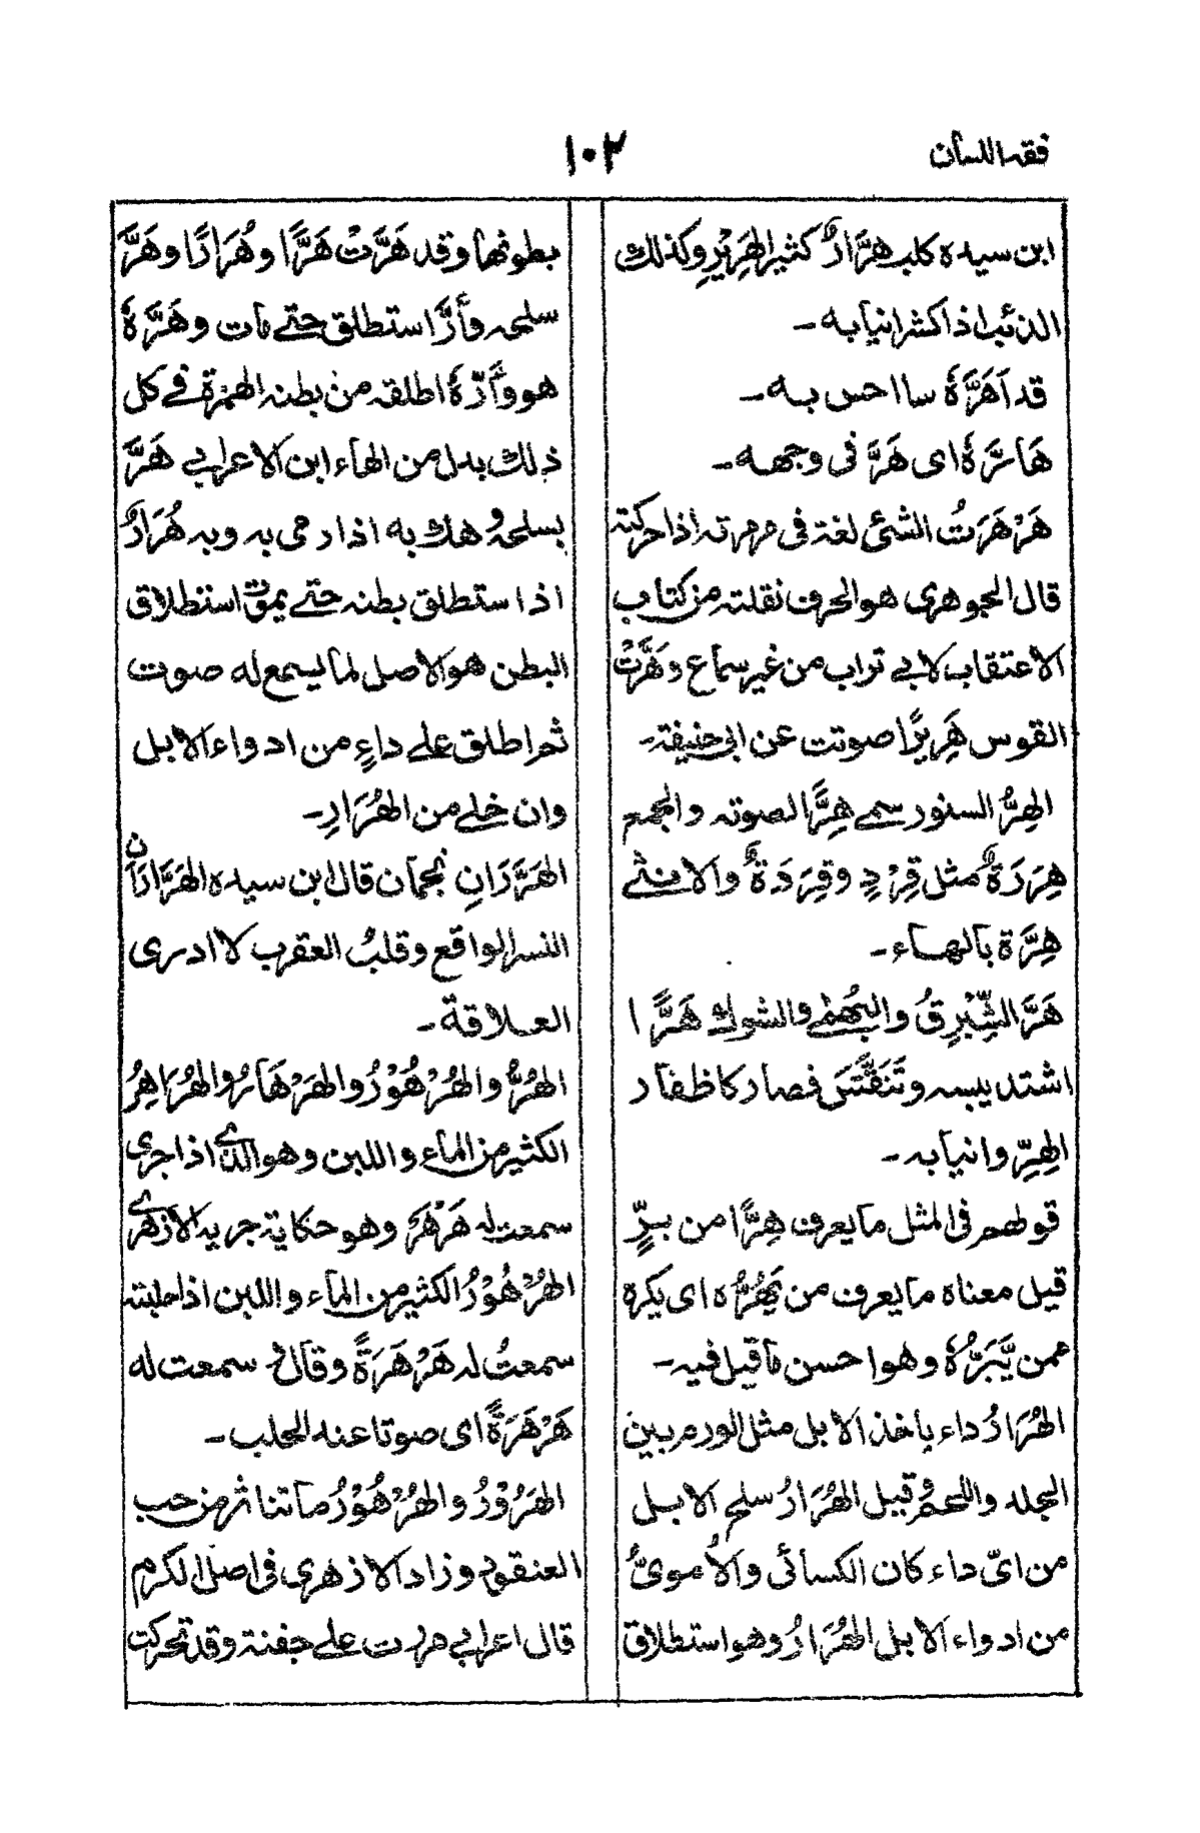 فقه اللسان
١٠٢
ابن سيده كلب هَرَّارٌ كثير الهَرِيْرِ وكذلك
الذئب اذا كشر انيابه ۔
قد اَهَرَّهٗ سا احس به ۔
هَارَّهٗ اى هَرَّ فى وجهه ۔
هَرْهَرَتُ الشئ لغة فى مرمرته اذا حركته
قال الجوهرى هو الحرف نقلته من كتاب
الاعتقاب لابے تراب من غير سماع وهَرَّتْ
القوس هَرِيْرًا صوتت عن ابى حنيفة ۔
الهِرُّ السنور سمے هِرًّا لصوته والجمع
هِرَرَةٌ مثل قِرْدٍ وقِرَدَةٌ والانثے
هِرَّة بالهاء ۔
هَرَّ الشِّبْرِقُ والبُهْمٰے والشوك هَرًّا
اشتد يبسه وتَنَفَّشَ فصار كاظفار
الهِرِّ وانيابه ۔
قولهم فى المثل ما يعرف هِرًّا من بِرٍّ
قيل معناه ما يعرف من يَهُرُّه اى يكره
ممن يَّبَرُّهٗ وهوا حسن ما قيل فيه ۔
الهُرَارُ داء ياخذ الابل مثل الورم بين
الجلد واللحم وقيل الهُرَارُ سلح الابل
من اىّ داء كان الكسائى والاُموىُّ
من ادواء الابل الهُرَارُ وهو استطلاق
بطونها وقد هَرَّتْ هَرًّا وهُرَارًا وهَرَّ
سلحه وأرَّ استطلق حتے مات وهَرَّهٗ
هو وأَرّهٗ اطلقه من بطنه الهمزة فے كل
ذلك بدل من الهاء ابن الاعرابے هَرَّ
بسلحه وهك به اذا رمى به وبه هُرَارٌ
اذا استطلق بطنه حتے يموت استطلاق
البطن هو الاصل لما يسمع له صوت
ثم اطلق علے داءٍ من ادواء الابل
وان خلے من الهُرَارِ ۔
الهَرَّارَانِ نجمان قال ابن سيده الهَرَّارَانِ
النسر الواقع وقلبُ العقرب لا ادرى
العلاقة ۔
الهُرُّ والهُرْهُوْرُ والهَرْهَارُ والهُرَاهِرُ
الكثير من الماء واللبن وهو الذے اذا جرى
سمعت له هَرْهَر وهو حكاية جريه الازهرے
الهُرْهُوْرُ الكثير من الماء واللبن اذا حلبته
سمعتُ له هَرْهَرَةً وقال سمعت له
هَرْهَرَةً اى صوتا عند الحلب ۔
الهَرُوْرُ والهُرْهُوْرُ ما تناثر من حب
العنقود وزاد الازهرى فى اصل الكرم
قال اعرابے مررت علے جفنة وقد تحركت